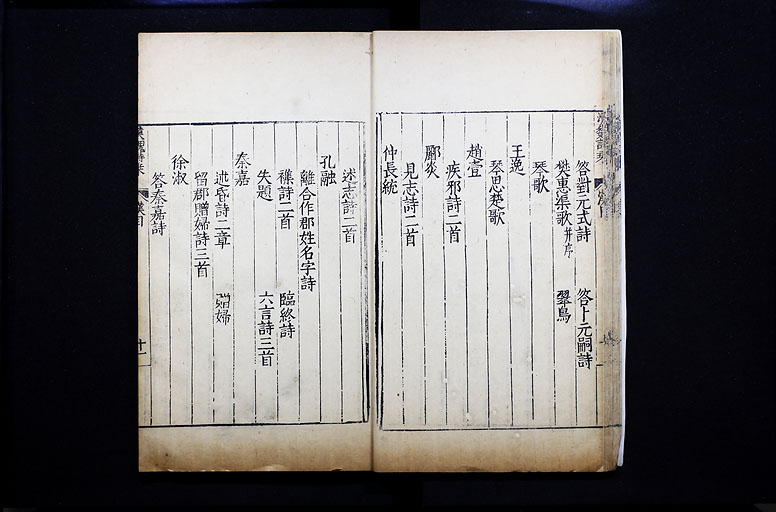 答對元式詩 答卜元嗣詩
樊惠渠歌并序 翠鳥
琴歌
王逸
琴思楚歌
趙壹
疾邪詩二首
酈炎
見志詩二首
仲長統
述志詩二首
孔融
離合作郡姓名字詩
襍詩二首 臨終詩
失題 六言詩三首
秦嘉
述昏詩二章 贈婦
留郡贈婦詩三首
徐淑
答秦嘉詩
十一